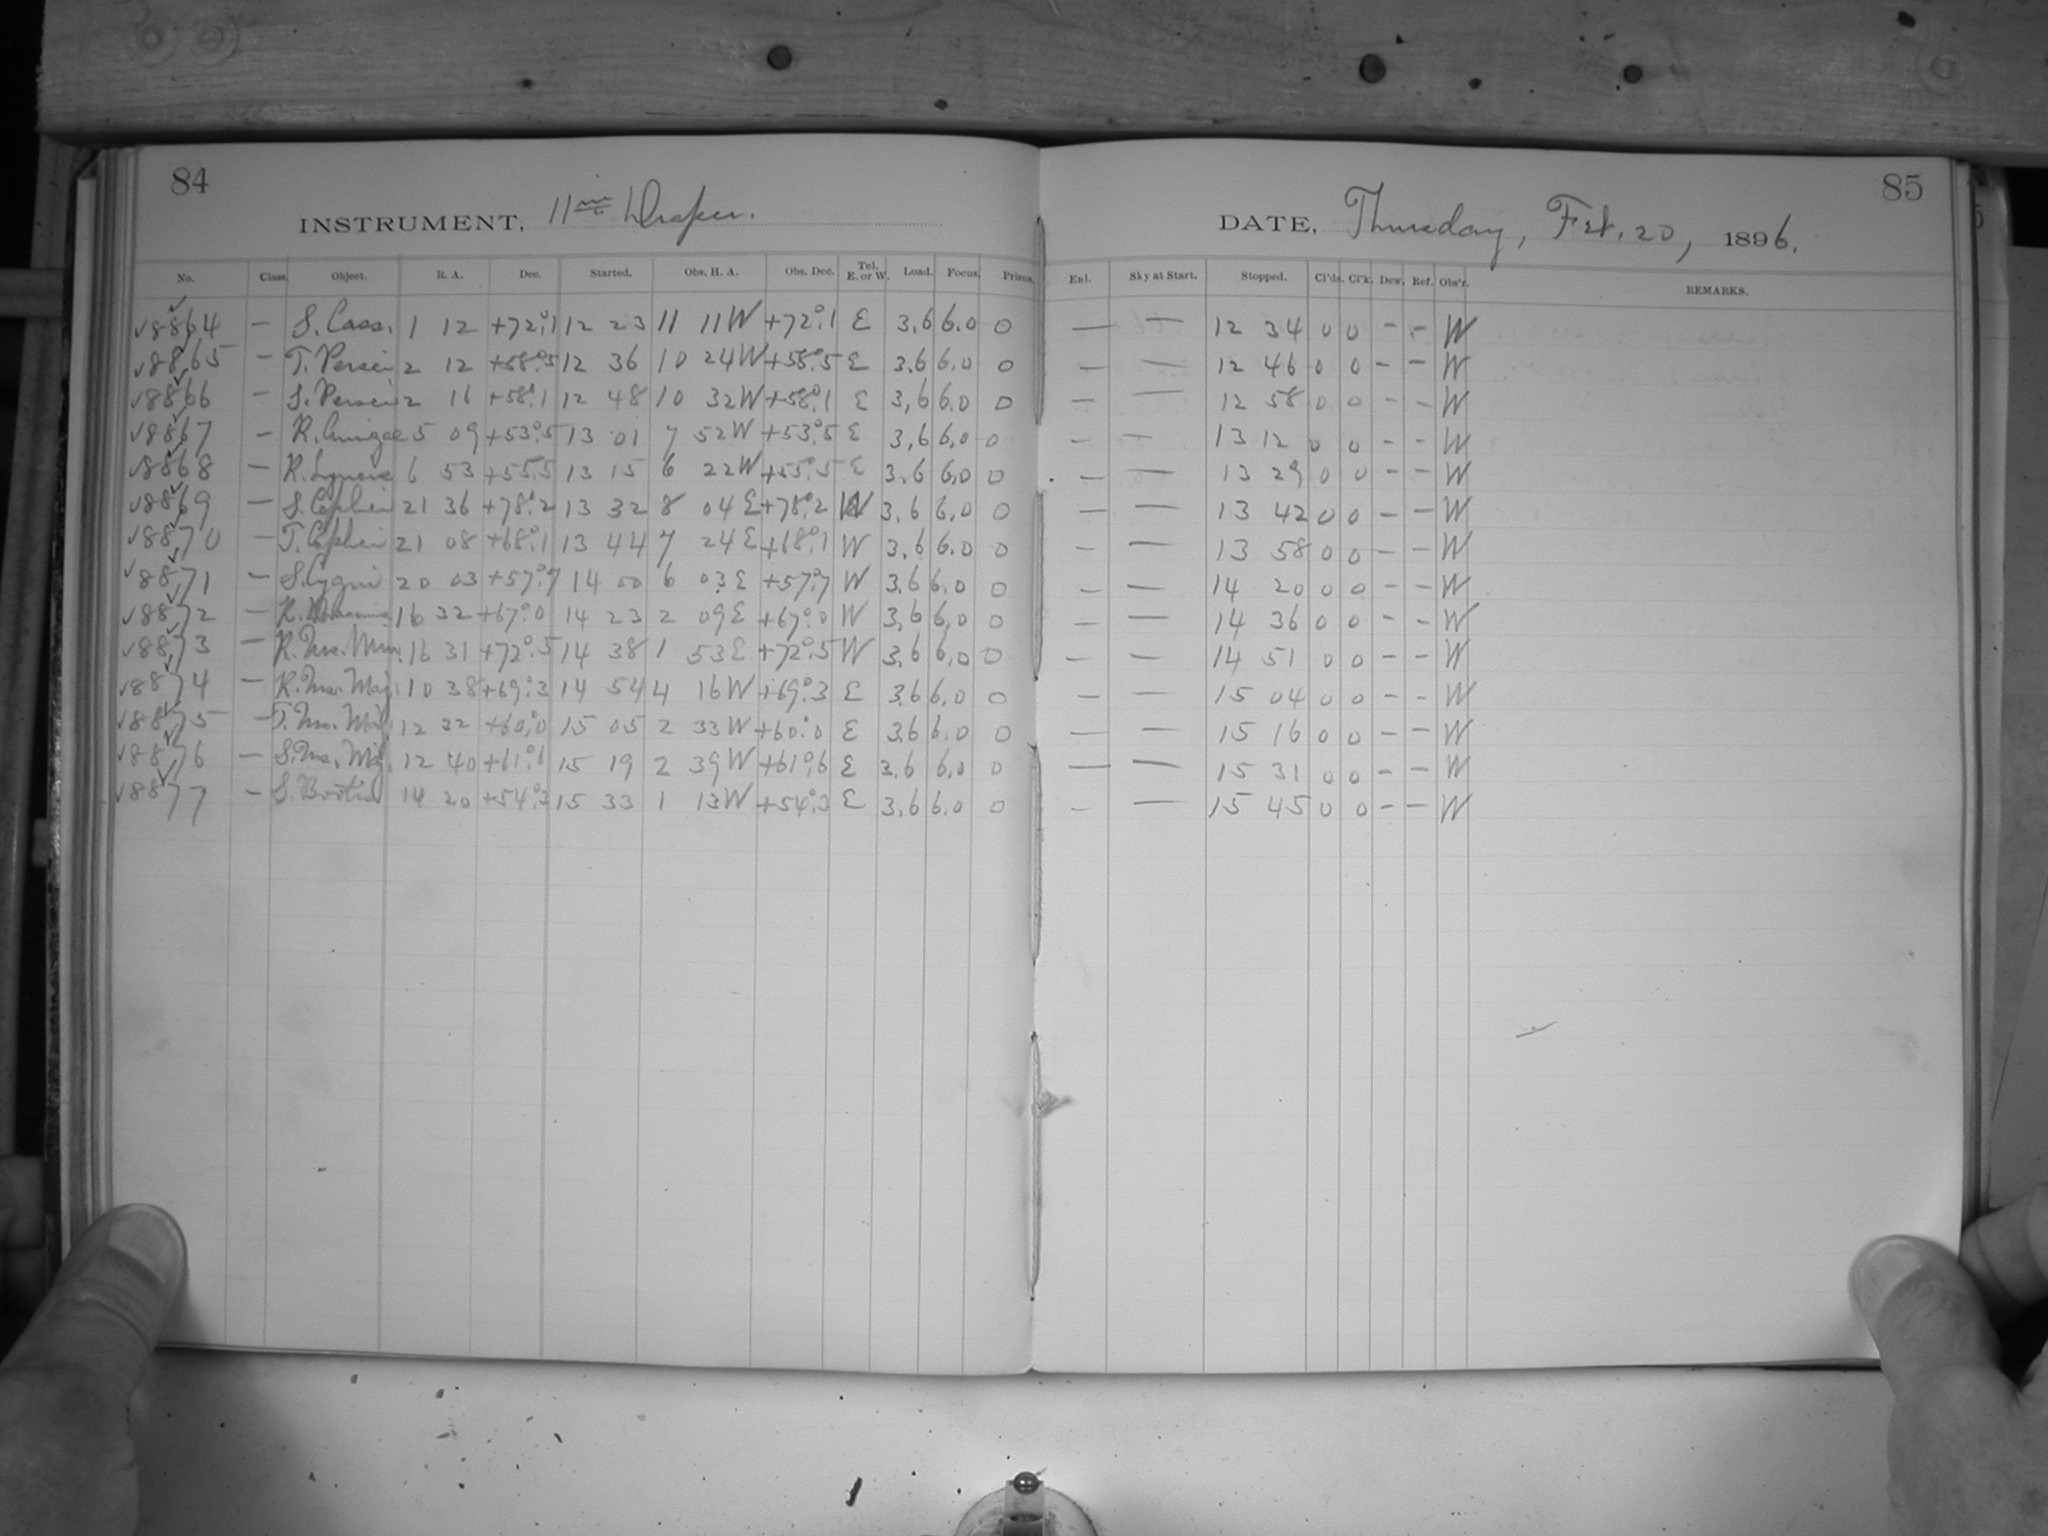 84
INSTRUMENT, 11 in Draper.
No. Class. Object. R. A. Dec. Started. Obs. H. A. Obs. Dec. Tel. E. or W. Load. Focus. Prisms.
✓8864 — S. Cass. 1 12 +72°.1 12 23 11 11W +72°.1 E 3.6 6.0 0
✓8865 — T. Persei 2 12 +58°.5 12 36 10 24W +58°.5 E 3.6 6.0 0
✓8866 — S. Persei 2 16 +58°.1 12 48 10 32W +58°.1 E 3.6 6.0 0
✓8867 — R. Aurigae 5 09 +53°.5 13 01 7 52W +53°.5 E 3.6 6.0 0
✓8868 — R. Lyncis 6 53 +55°.5 13 15 6 22W +55°.5 E 3.6 6.0 0
✓8869 — S. Cephei 21 36 +78°.2 13 32 8 04E +78°.2 W 3.6 6.0 0
✓8870 — T. Cephei 21 08 +68°.1 13 44 7 24E +68°.1 W 3.6 6.0 0
✓8871 — S. Cygni 20 03 +57°.7 14 00 6 03E +57°.7 W 3.6 6.0 0
✓8872 — R. Draconis 16 32 +67°.0 14 23 2 09E +67°.0 W 3.6 6.0 0
✓8873 — R. Urs. Min. 16 31 +72°.5 14 38 1 53E +72°.5 W 3.6 6.0 0
✓8874 — R. Urs. Maj. 10 38 +69°.3 14 54 4 16W +69°.3 E 3.6 6.0 0
✓8875 — T. Urs. Maj. 12 32 +60°.0 15 05 2 33W +60°.0 E 3.6 6.0 0
✓8876 — S. Urs. Maj. 12 40 +61°.6 15 19 2 39W +61°.6 E 3.6 6.0 0
✓8877 — S. Bootis 14 20 +54°.3 15 33 1 13W +54°.3 E 3.6 6.0 0
85
DATE, Thursday, Feb. 20, 1896.
Enl. Sky at Start. Stopped. Cl'ds. Cl'k. Dew. Ref. Obs'r. REMARKS.
— — 12 34 0 0 - - W
— — 12 46 0 0 - - W
— — 12 58 0 0 - - W
— — 13 12 0 0 - - W
— — 13 29 0 0 - - W
— — 13 42 0 0 - - W
— — 13 58 0 0 - - W
— — 14 20 0 0 - - W
— — 14 36 0 0 - - W
— — 14 51 0 0 - - W
— — 15 04 0 0 - - W
— — 15 16 0 0 - - W
— — 15 31 0 0 - - W
— — 15 45 0 0 - - W